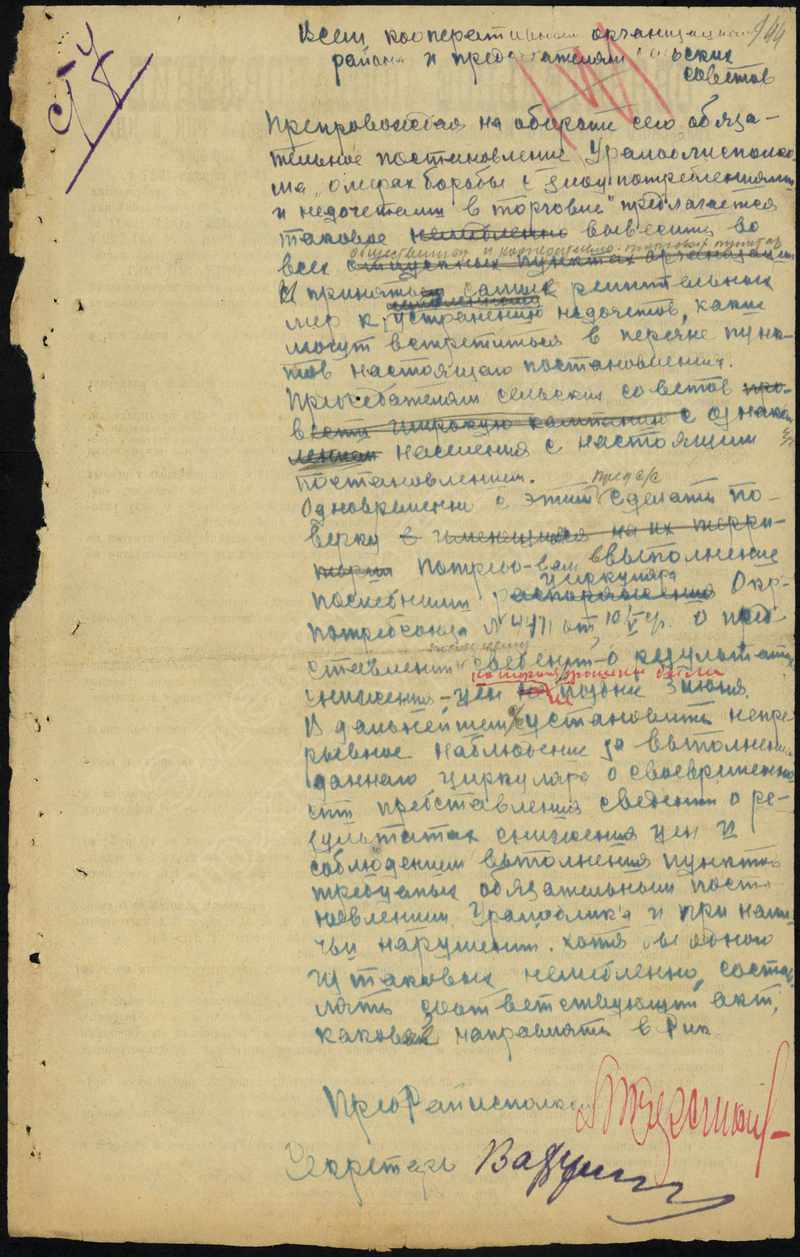 144
Всем кооперативным организациям
района и председателям сельских
советов
Препровождая на обороте сего обяза-
тельное постановление Уралоблисполко-
ма „О мерах борьбы с злоупотреблениями
и недочетами в торговле" предлагается
таковое немедленно вывесить во
общественных и кооперативно-торговых пунктах
всех
и принять самых решительных
мер к устранению недочетов, какие
могут встретиться в перечне пунк-
тов настоящего постановления.
Председателям сельских советов про-
вести широкую кампанию с ознаком
лением населения с настоящим
постановлением.
Одновременно с этим сделать по-
верку в имеющихся на их терри-
тории потреб-вам выполнение
циркуляра
последними распоряжения Окр-
потребсоюза № 4471 от 10/V с/г. О пред-
ставлении сведений о результатах
снижения цен не позднее 3 июня.
В дальнейшем установить непре-
рывное наблюдение за выполнением
данного циркуляра о своевременно
сти представления сведений о ре-
зультатах снижения цен и
соблюдением выполнения пунктов
требуемых обязательным поста
новлением Уралоблик'а и при нали-
чьи нарушений хотя бы одного
из таковых немедленно состав
лять соответствующий акт,
каковой направлять в Рик
ПредРайисполкома
Секретарь